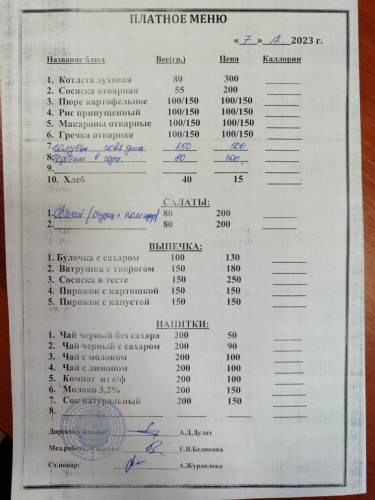 ПЛАТНОЕ МЕНЮ
« 7 » 12 2023 г.
Название блюд Вес(гр.) Цена Каллории
1. Котлета духовая 80 300
2. Сосиска отварная 55 200
3. Пюре картофельное 100/150 100/150
4. Рис припущенный 100/150 100/150
5. Макароны отварные 100/150 100/150
6. Гречка отварная 100/150 100/150
7. 250 500
8. в 80 300
9.
10. Хлеб 40 15
САЛАТЫ:
1. Свежий (огурц + помидор) 80 200
2. 80 200
ВЫПЕЧКА:
1. Булочка с сахаром 100 130
2. Ватрушка с творогом 150 180
3. Сосиска в тесте 150 250
4. Пирожок с картошкой 150 150
5. Пирожок с капустой 150 150
НАПИТКИ:
1. Чай черный без сахара 200 50
2. Чай черный с сахаром 200 90
3. Чай с молоком 200 100
4. Чай с лимоном 200 100
5. Компот из с/ф 200 100
6. Молоко 3,2% 200 150
7. Сок натуральный 200 150
8.
Директор А.Д.Дулат
Мед.работник Е.В.Беликова
Ст.повар: А.Журавлева